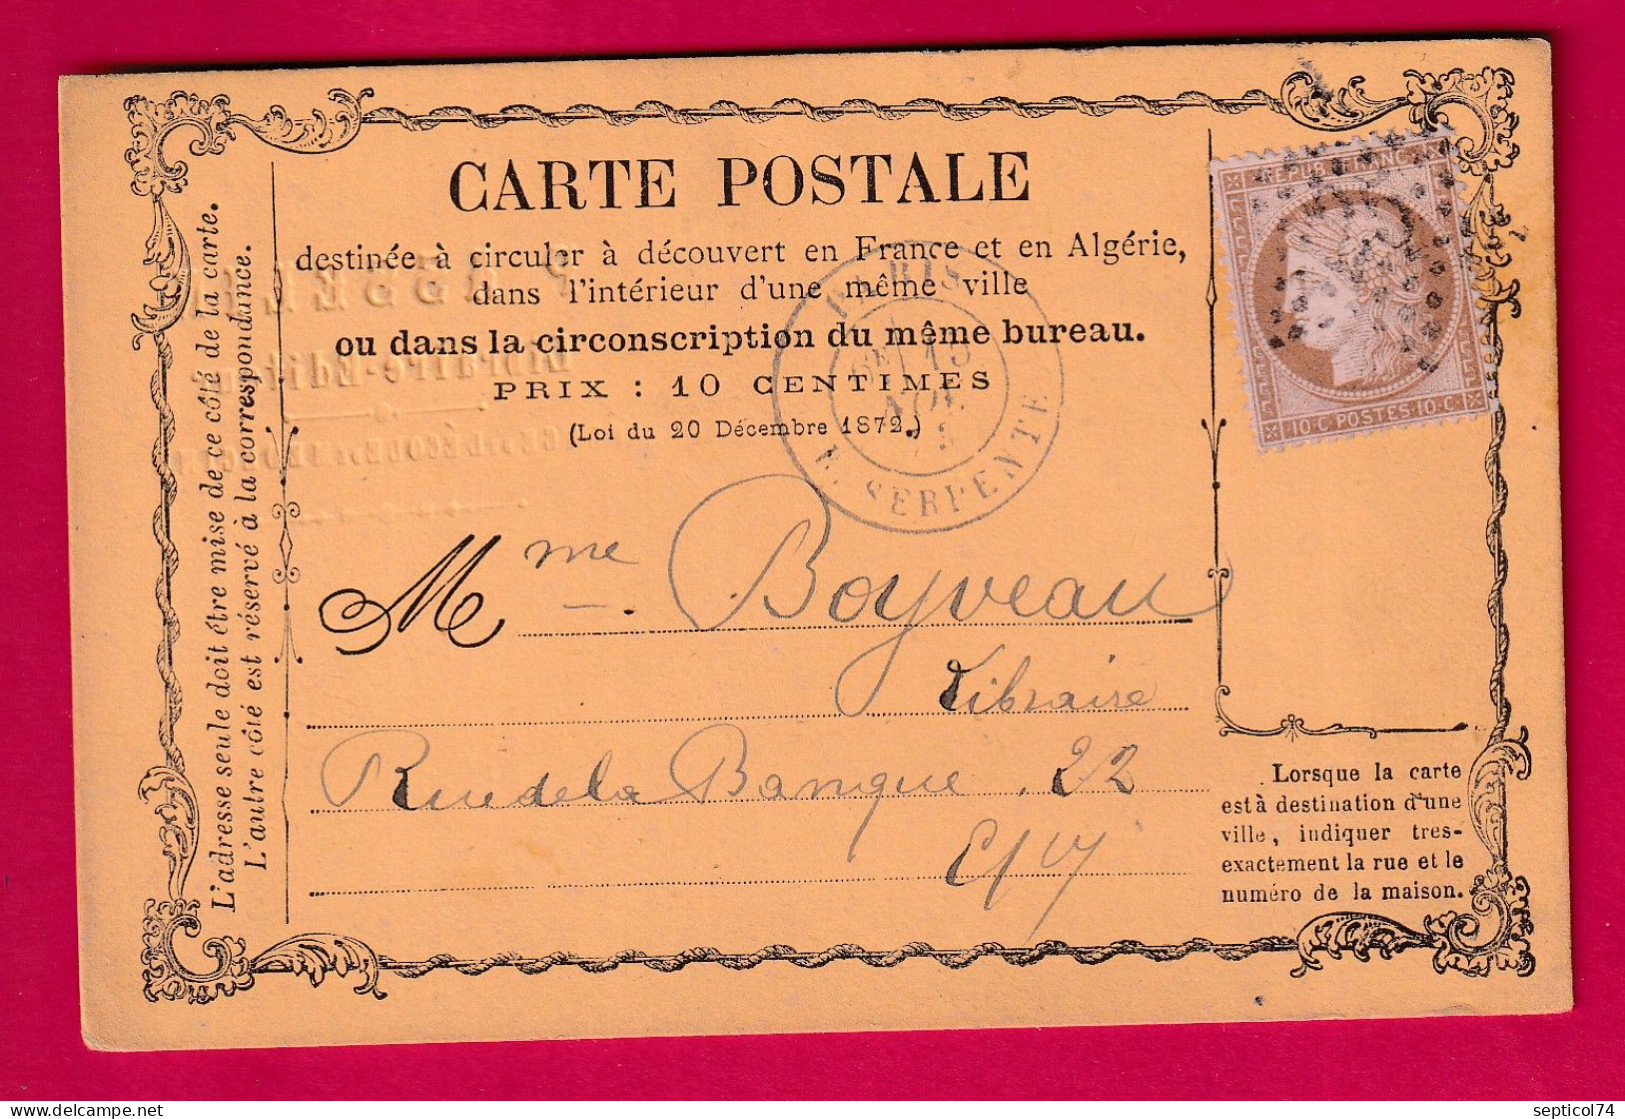 CARTE POSTALE
destinée à circuler à découvert en France et en Algérie,
dans l'intérieur d'une même ville
ou dans la circonscription du même bureau.
PRIX : 10 CENTIMES
(Loi du 20 Décembre 1872.)
L'adresse seule doit être mise de ce côté de la carte.
L'autre côté est réservé à la correspondance.
PARIS
15
R. SERPENTE
REPUB. FRANC.
10.C POSTES.10.C.
Mme Boyveau
Libraire
Rue de la Banque. 22
E/V
Lorsque la carte
est à destination d'une
ville, indiquer tres-
exactement la rue et le
numéro de la maison.
Librairie-Editeur
delcampe.net
septicol74